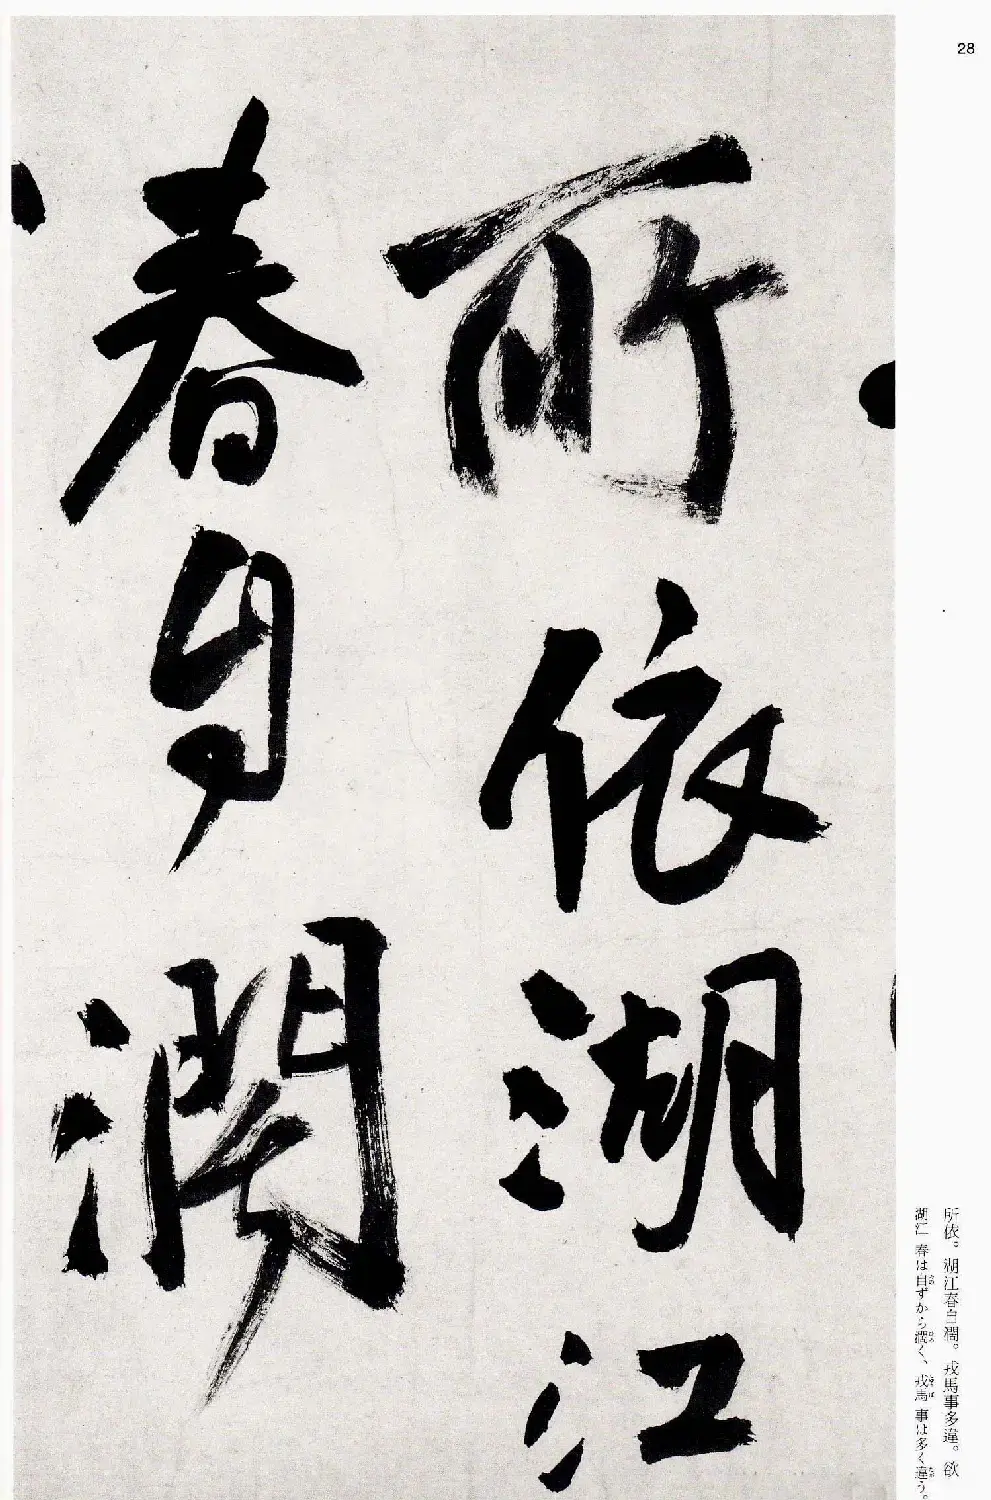 28
所依湖江
春自濶
所依。湖江春自濶。戎馬事多違。欲
湖江 春は自ずから濶く、戎馬 事は多く違う。